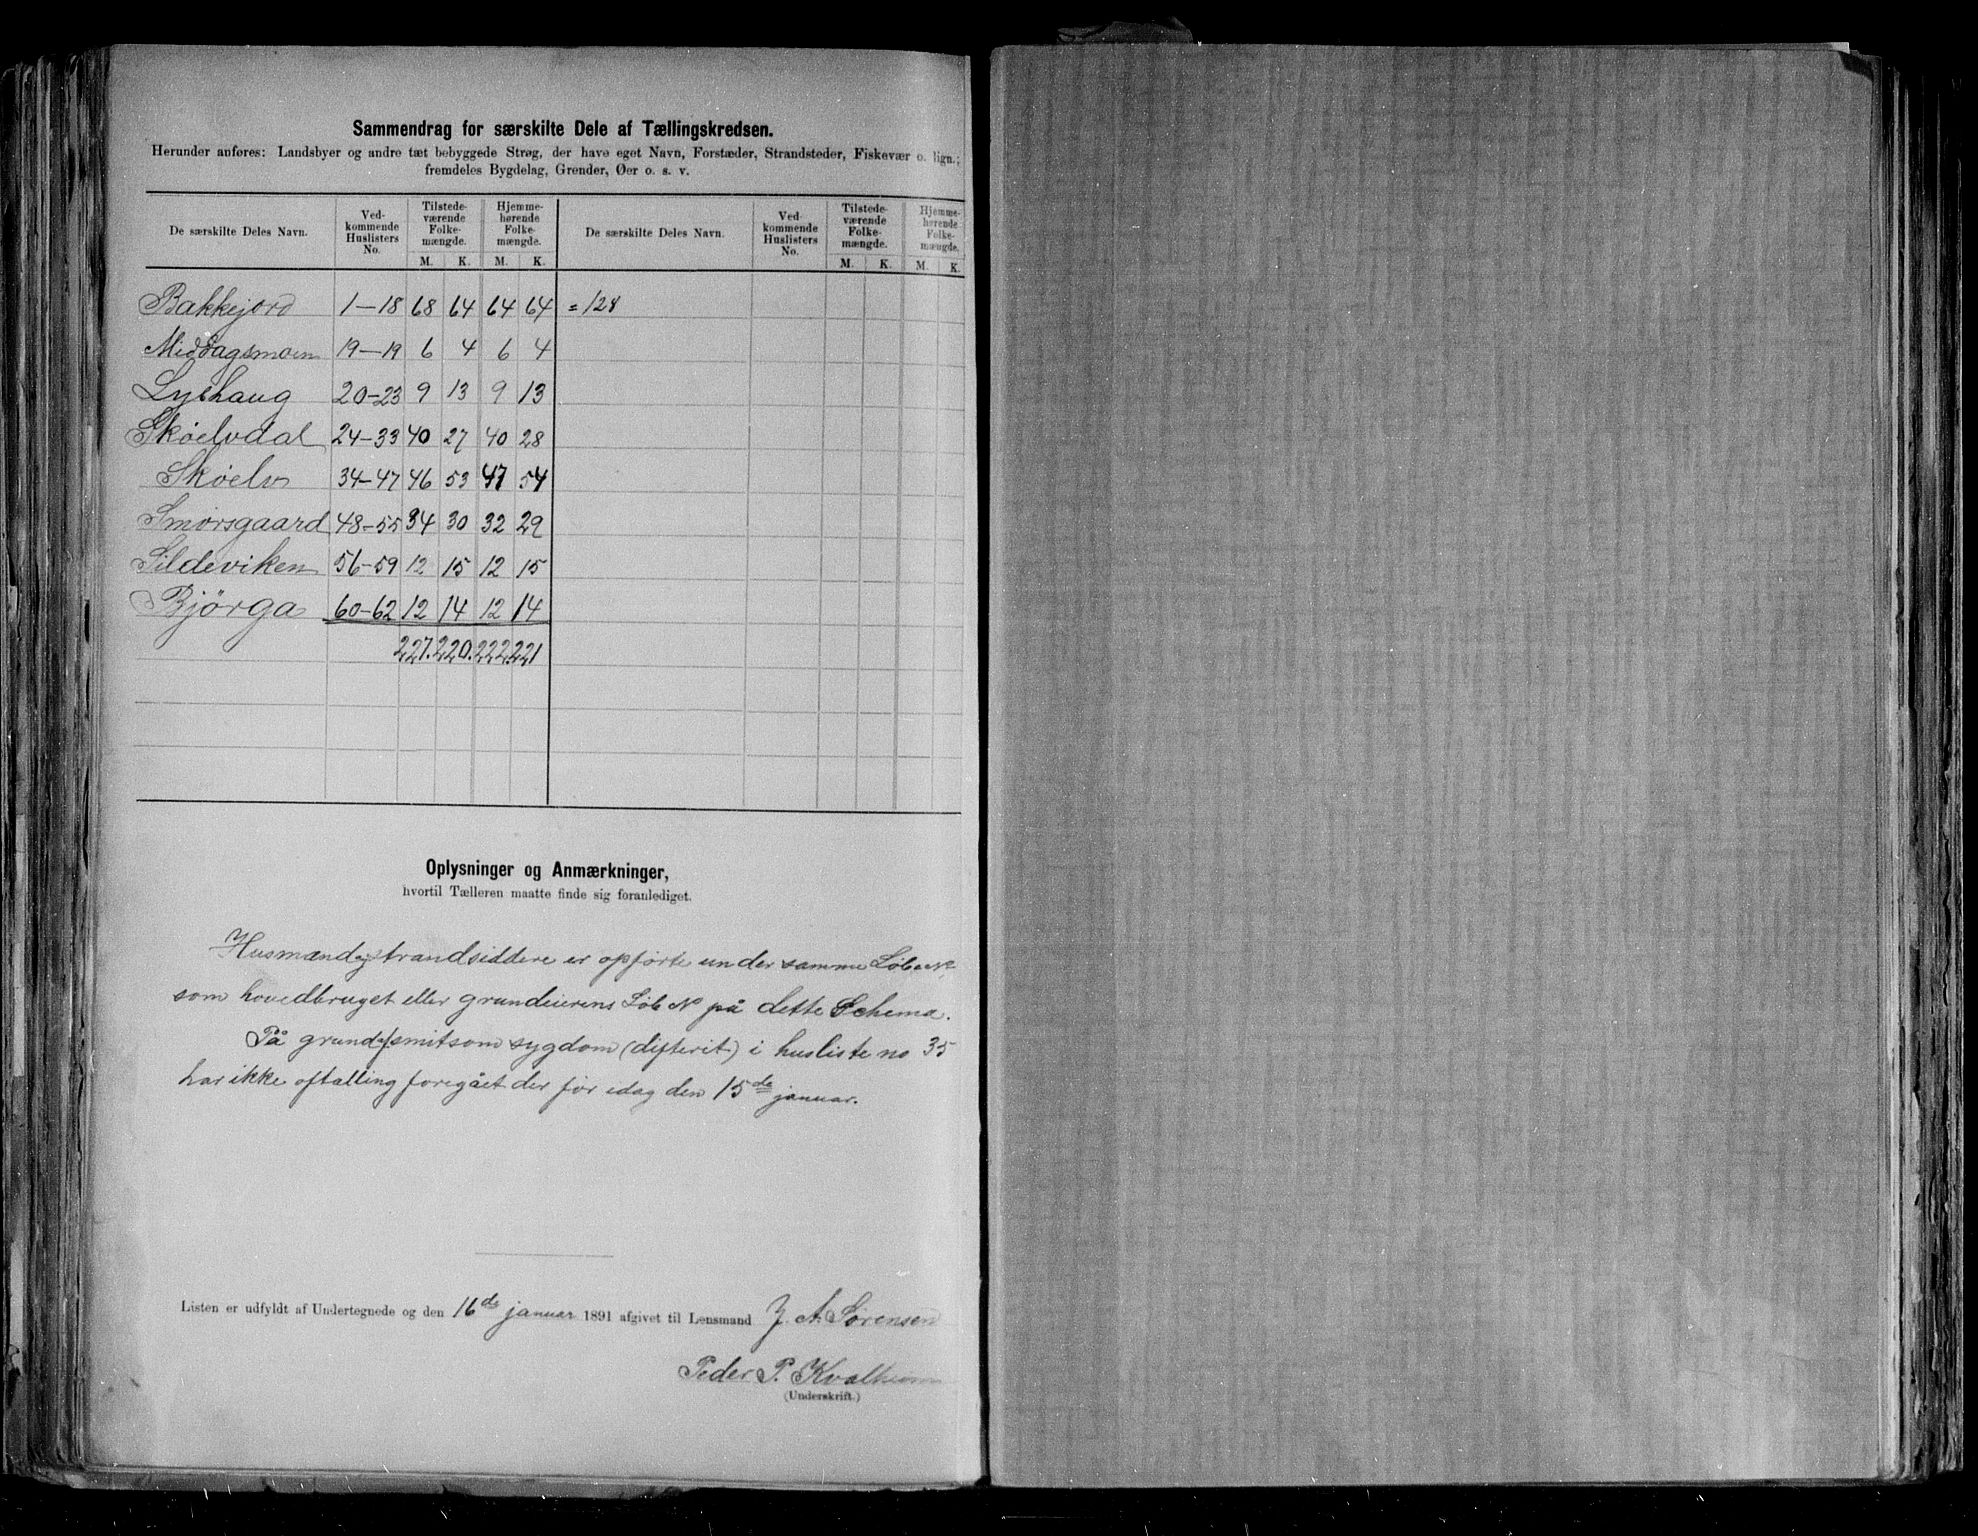 Sammendrag for særskilte Dele af Tællingskredsen.
Herunder anføres: Landsbyer og andre tæt bebyggede Strøg, der have eget Navn, Forstæder, Strandsteder, Fiskevær o. lign.;
fremdeles Bygdelag, Grender, Øer o. s. v.
De særskilte Deles Navn. Ved-kommende Huslisters No. Tilstede-værende Folke-mængde. Hjemme-hørende Folke-mængde. De særskilte Deles Navn. Ved-kommende Huslisters No. Tilstede-værende Folke-mængde. Hjemme-hørende Folke-mængde.
M. K. M. K. M. K. M. K.
Bakkejord 1–18 68 64 64 64 = 128
Middagsmoen 19–19 6 4 6 4
Lyshaug 20–23 9 13 9 13
Skøelvdal 24–33 40 27 40 28
Skøelv 34–47 46 53 47 54
Smørsgaard 48–55 34 30 32 29
Sildeviken 56–59 12 15 12 15
Bjørga 60–62 12 14 12 14
227. 220. 222. 221
Oplysninger og Anmærkninger,
hvortil Tælleren maatte finde sig foranlediget.
Husmænd og strandsiddere er opførte under samme Løbe N
som hovedbruget eller grundeierens Løb N på dette Schema.
På grund af smitsom sygdom (difterit) i husliste no 35
har ikke oftalling foregået der før idag den 15de januar.
Listen er udfyldt af Undertegnede og den 16de januar 1891 afgivet til Lensmand J. A. Sørensen
Peder P. Kvalheim
(Underskrift.)